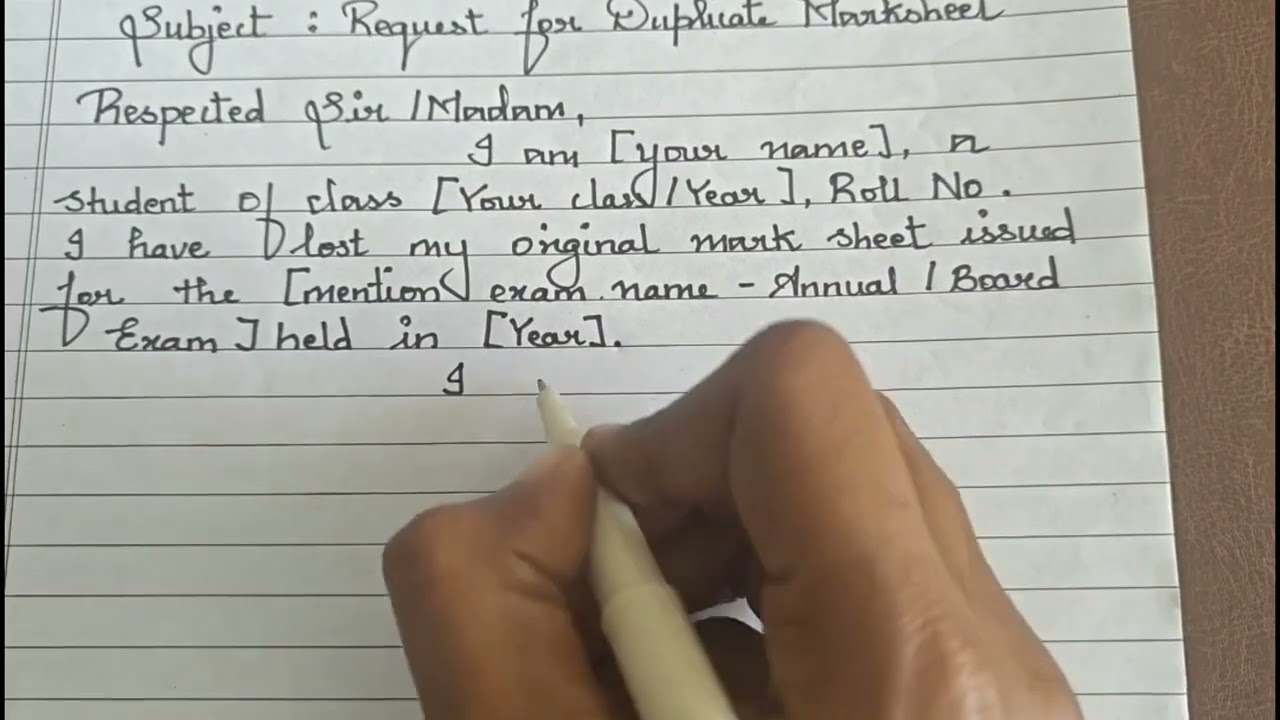 Subject : Request for Duplicate Marksheet
Respected Sir / Madam,
I am [your name], a
student of class [Your class / Year], Roll No.
I have lost my original mark sheet issued
for the [mention exam name - Annual / Board
Exam] held in [Year].
I